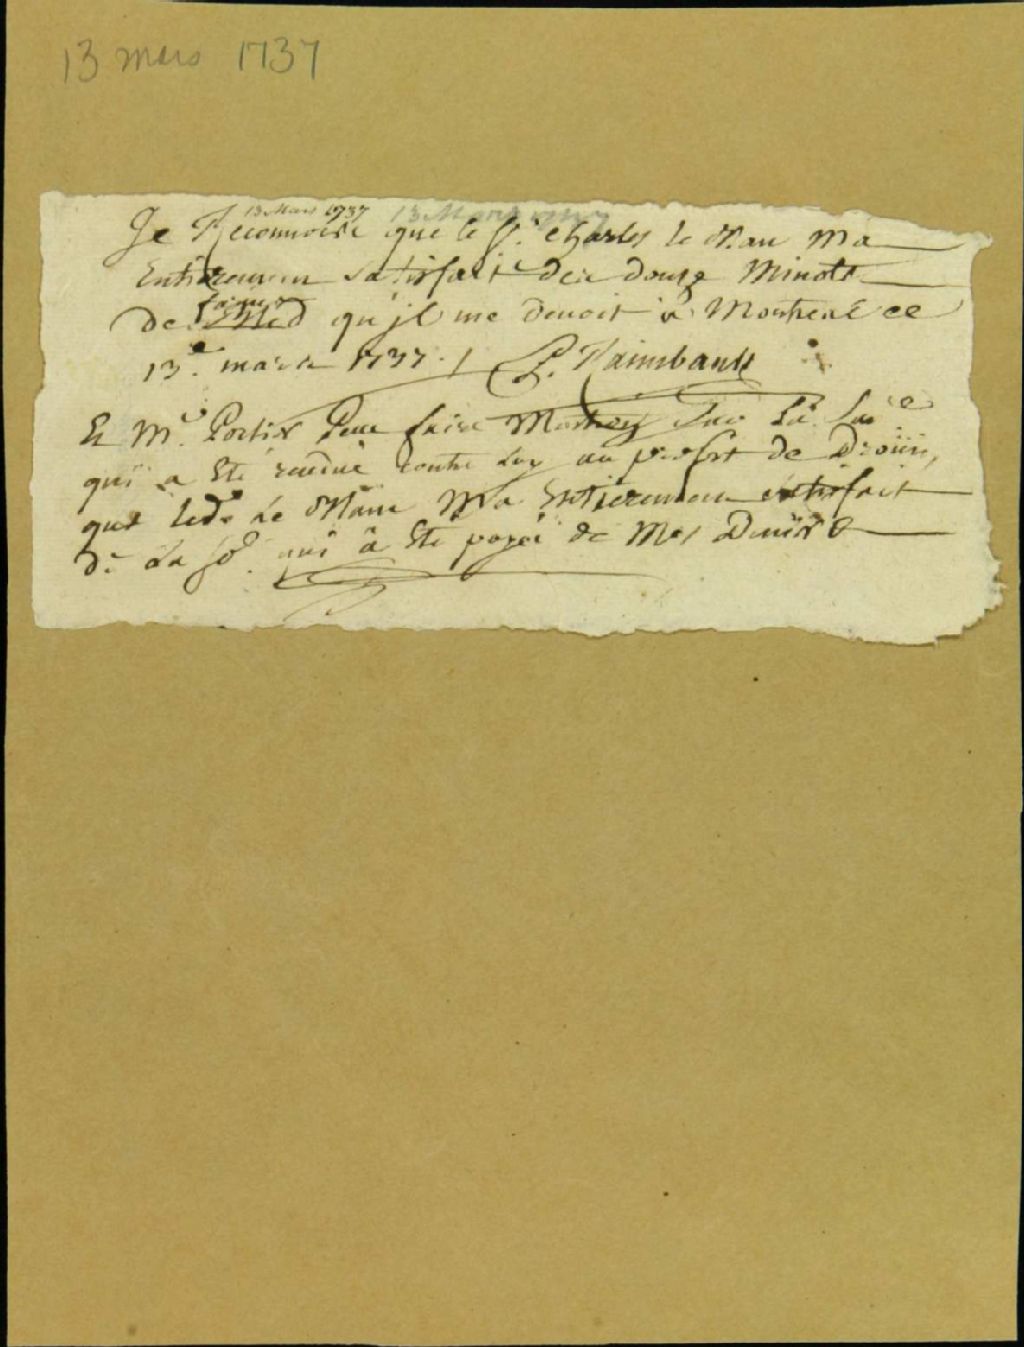 13 mars 1737
13 Mars 1737 13 Mars 1737
Je Reconnoise que le Sr. Charles le Man Ma
Entierement satisfait des douze Minots
de bled qu'jl me devoit à Montreal ce
13e. mars 1737 ./. P. Raimbault
Et Mr. Portier peut faire sur la
qui a Eté rendüe contre Luy au proffit de Droüin,
que led. Le Mane M'a Entierement satisfait
de La qui à Eté payéé de Mes Deniers